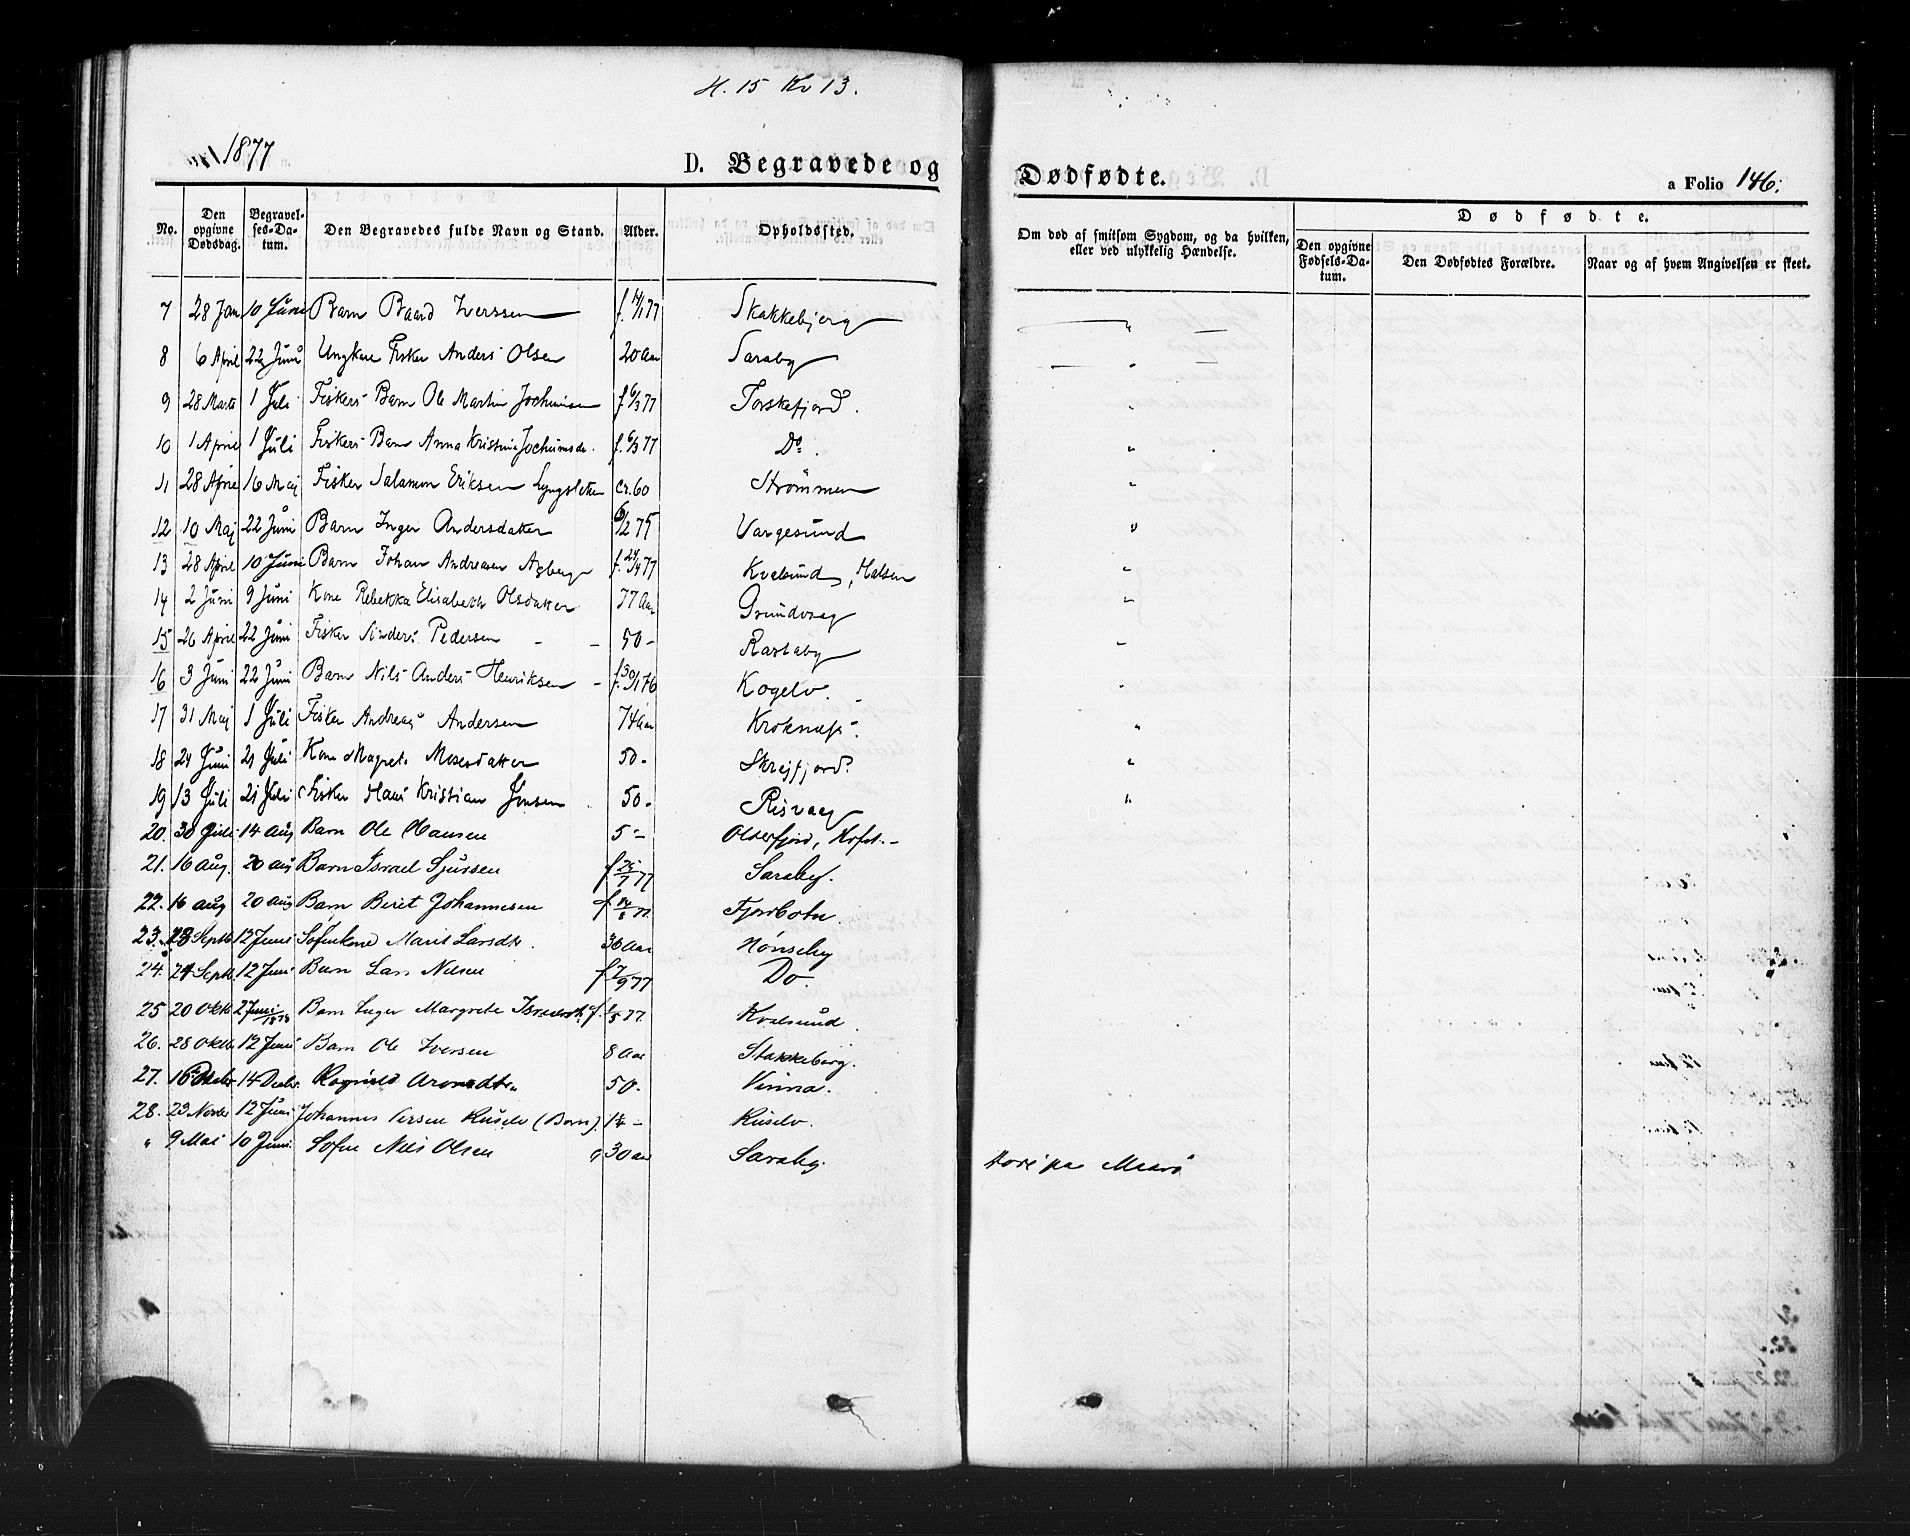 H. 15 Kv 13.
1877
D. Begravede og
Dødfødte.
a Folio 146.
No. Den opgivne Dødsdag. Begravelses-Datum. Den Begravedes fulde Navn og Stand. Alder. Opholdssted.
Om død af smitsom Sygdom, og da hvilken, eller ved ulykkelig Hændelse.
Dødfødte.
Den opgivne Fødsels-Datum. Den Dødfødtes Forældre. Naar og af hvem Angivelsen er skeet.
7 28 Jan 10 Juni Barn Baard Iverssen f. 14/1 77 Skakkebjerg
8 6 April 22 Juni Ungkarl Fisker Anders Olsen 20 Aar Saraby
9 28 Marts 1 Juli Fiskers Barn Ole Martin Jochumsen f 6/3 77 Torskefjord.
10 1 April 1 Juli Fiskers Barn Anna Kristine Jochumsdr. f. 6/3 77 Do.
11 28 April 16 Maj Fisker Salamon Eriksen cr. 60 Strömmen
12 10 Maj 22 Juni Barn Inger Andersdatter 6/2 75 Vargesund
13 28 April 10 Juni Barn Johan Andreasen f. 24/4 77 Kvalsund,
14 2 Juni 9 Juni Kone Rebekka Elisabeth Olsdatter 77 Aar Grundvaag
15 26 April 22 Juni Fisker Anders Pedersen 50 - Rastaby
16 3 Juni 22 Juni Barn Nils Anders Henriksen - f. 30/1 76 Kogelv.
17 31 Maj 1 Juli Fisker Andreas Andersen 74 Aar Kroknæs.
18 24 Juni 21 Juli Kone Magret Mosesdatter 50 - Skrejfjord.
19 13 Juli 21 Juli Fisker Hans Kristian Jensen 50 - Risvaag
20. 30 Juli 14 Aug Barn Ole Hansen 5 - Olderfjord,
21. 16 Aug. 20 Aug Barn Israel Sjursen f 25/7 77 Saraby.
22. 16 Aug 20 Aug Barn Beret Johannesen f 14/8 77 Fjordbotn.
23. 23 Septb 12 Juni Søfinkone Marit Larsdtr. 36 Aar Nönseby
24. 24 Septb. 12 Juni Barn Lars Nilsen f 7/9 77 Do.
25 20 Oktb 2 Juni/1878 Barn Inger Margrete Israelsdtr. f. /5 77. Kvalsund.
26. 28 Oktb. 12 Juni Barn Ole Iversen 8 Aar Stakkeberg.
27. 16 14 Decbr. Ragnild Aronsdtr. 50. Vinna.
28. 23 Novbr 12 Juni Johannes Persen Kuselv (Barn). 1¼ - Kuselv.
" 9 Mai 10 Juni. Søfin Nils Olsen 30 aar Saraby.